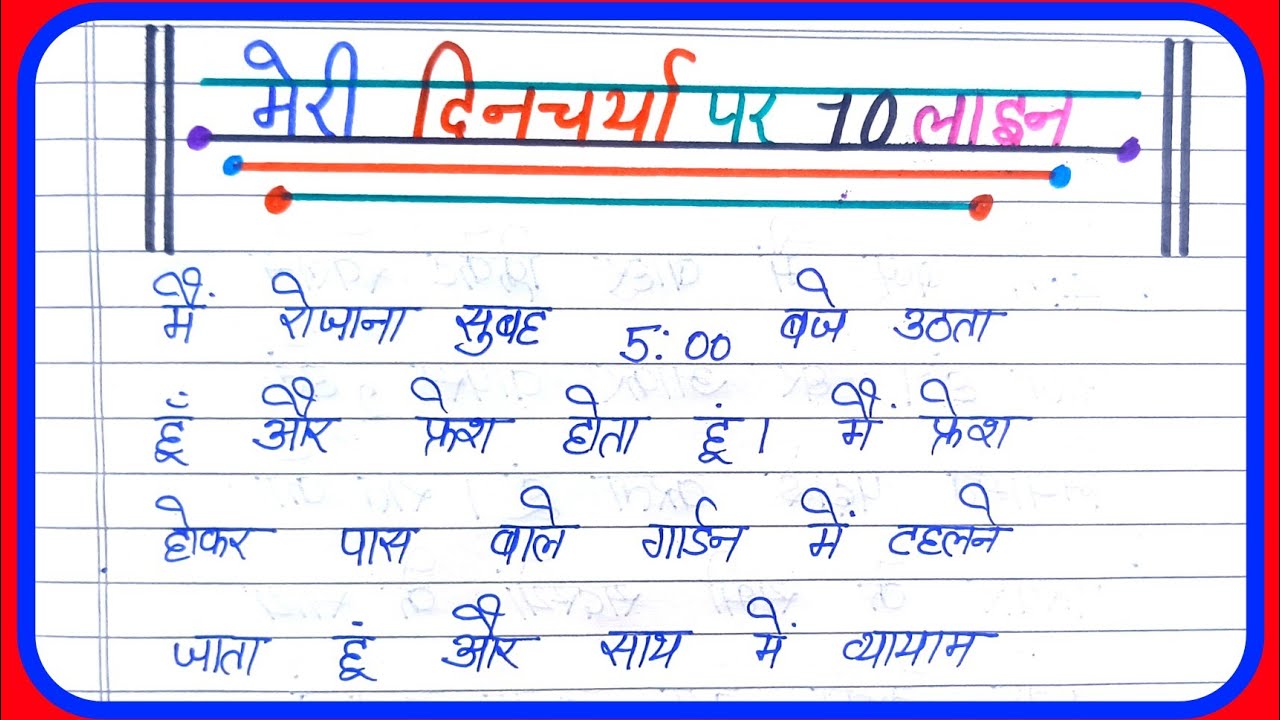 मेरी दिनचर्या पर 10 लाइन
मैं रोजाना सुबह 5:00 बजे उठता
हूँ और फ्रेश होता हूं। मैं फ्रेश
होकर पास वाले गार्डन में टहलने
जाता हूं और साथ में व्यायाम